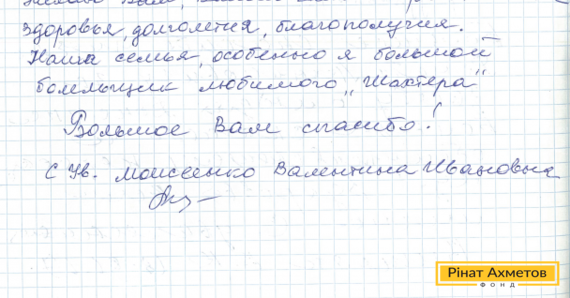 здоровья, долголетия, благополучия.
Наша семья, особенно я большой
болельщик любимого „Шахтера"
Большое Вам спасибо!
С Ув. Моисеенко Валентина Ивановна
Рінат Ахметов
ФОНД